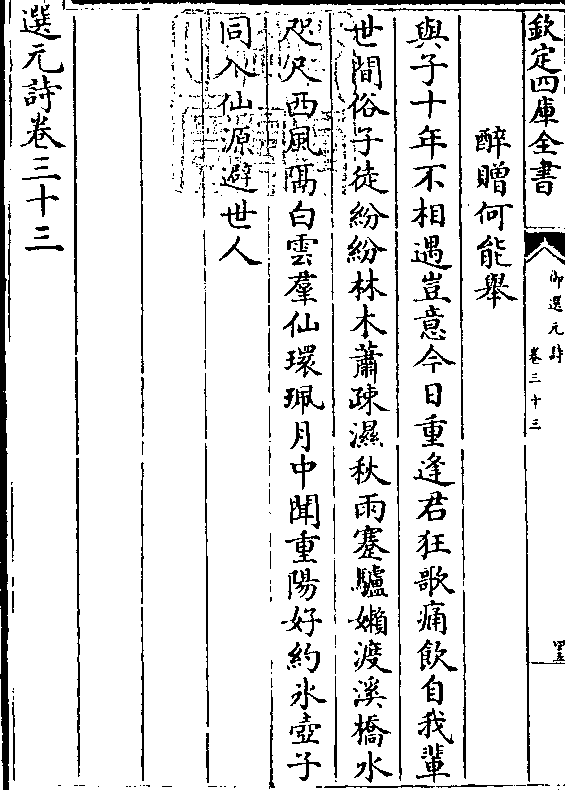 欽定四庫全書
御選元詩
卷三十三
醉贈何能舉
與子十年不相遇豈意今日重逢君狂歌痛飲自我輩
世間俗子徒紛紛林木蕭疎濕秋雨蹇驢嬾渡溪橋水
咫尺西風隔白雲羣仙環珮月中聞重陽好約氷壺子
同入仙源避世人
選元詩卷三十三